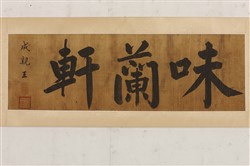 味蘭軒
成親王